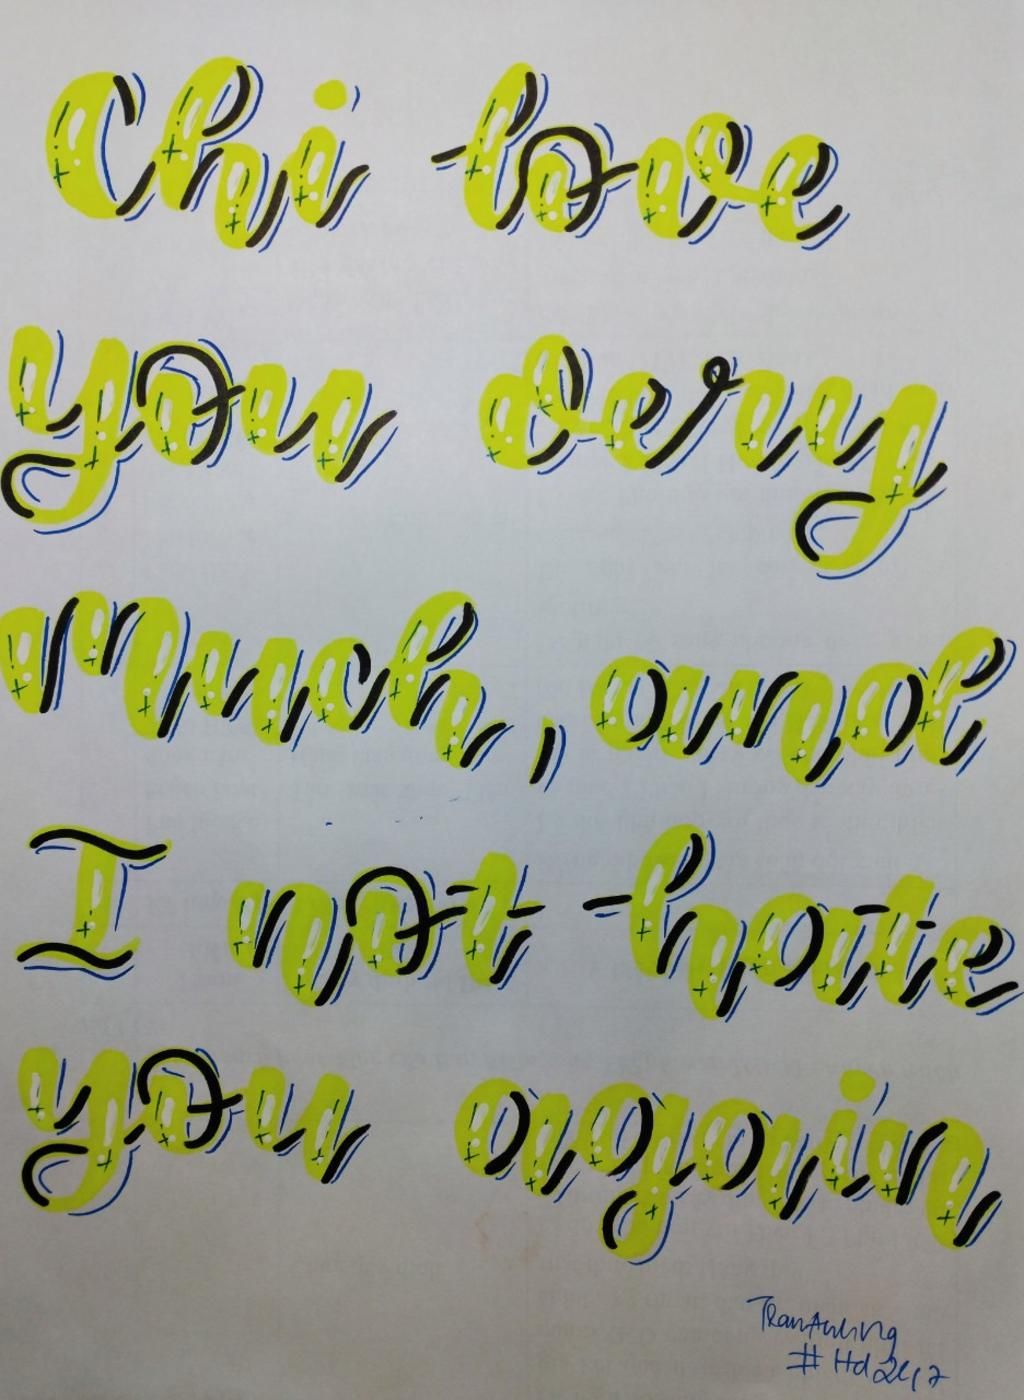 Chi love
you very
much, and
I not hate
you again